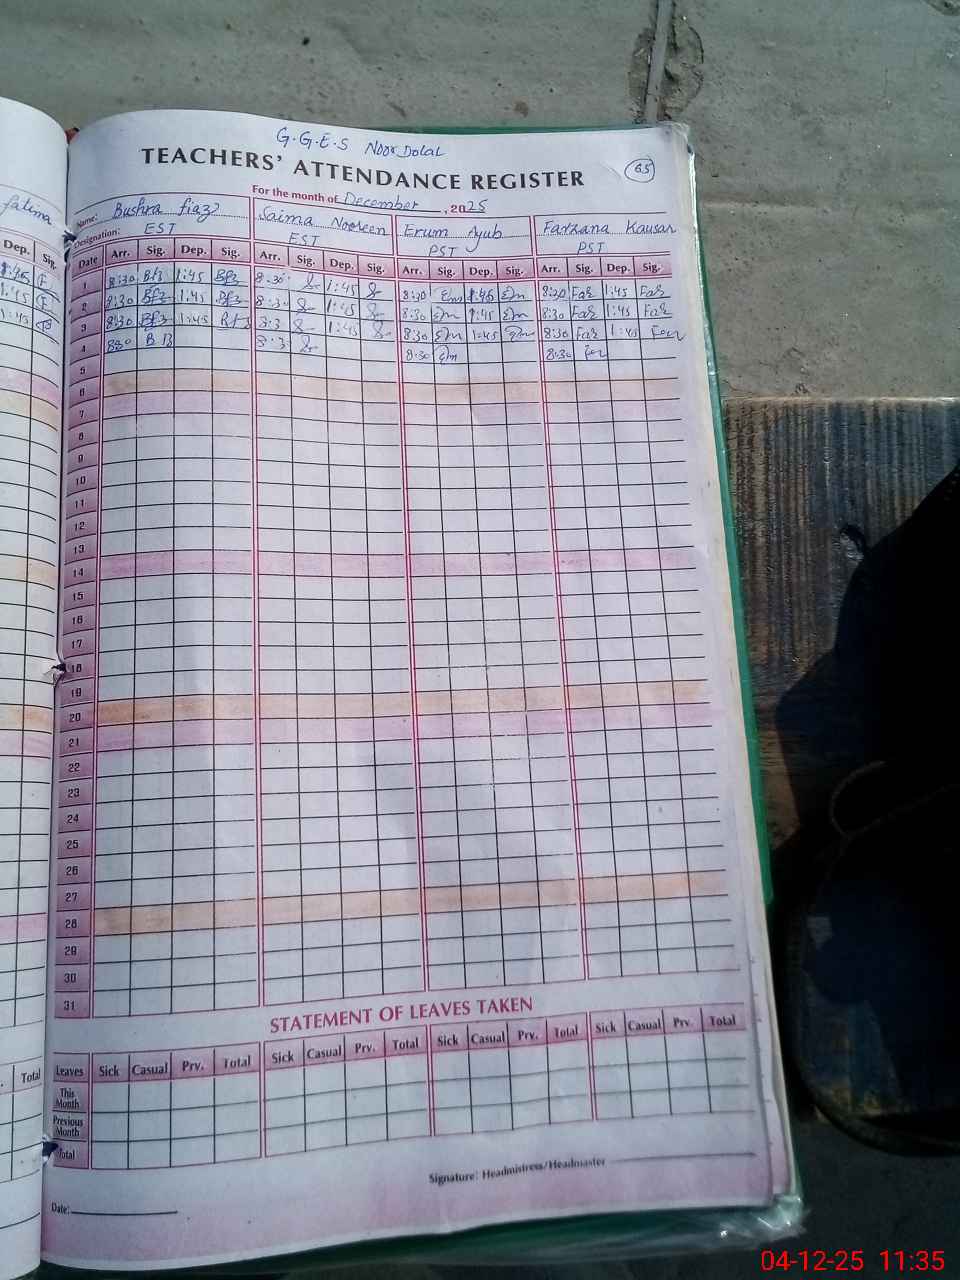 G.G.E.S Noor Dolal
TEACHERS' ATTENDANCE REGISTER
65
For the month of December, 2025
fatima
Name: Bushra fiaz Saima Noreen Erum Ayub Farzana Kausar
Designation: EST EST PST PST
Dep. Sig.
Date Arr. Sig. Dep. Sig. Arr. Sig. Dep. Sig. Arr. Sig. Dep. Sig. Arr. Sig. Dep. Sig.
1:45
1 8:30 Bfz 1:45 Bfz 8:30 1:45 8:30 Em 1:45 Em 8:30 Far 1:45 Far
1:45
2 8:30 Bfz 1:45 Bfz 8:30 1:45 8:30 Em 1:45 Em 8:30 Far 1:45 Far
1:45
3 8:30 Bfz 1:45 Bfz 1:45 8:30 Em 1:45 Em 8:30 Far 1:45 Far
4 830 8:30 Em 8:30 Far
5
6
7
8
9
10
11
12
13
14
15
16
17
18
19
20
21
22
23
24
25
26
27
28
29
30
31
STATEMENT OF LEAVES TAKEN
Total
Leaves Sick Casual Prv. Total Sick Casual Prv. Total Sick Casual Prv. Total Sick Casual Prv. Total
This Month
Previous Month
Total
Signature: Headmistress/Headmaster
Date:
04-12-25 11:35